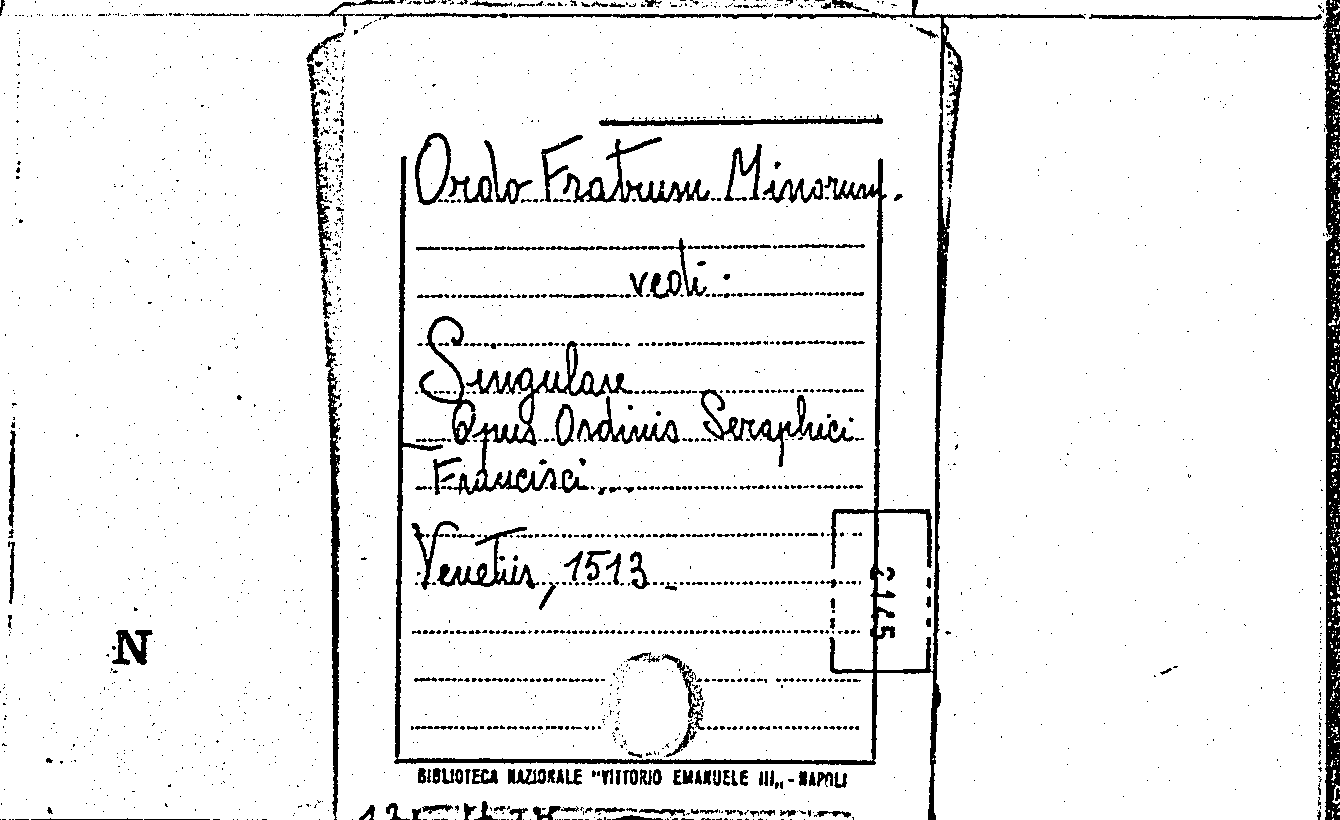 Ordo Fratrum Minorum.
vedi.
Singulare
Opus Ordinis Seraphici
Francisci...
Venetiis, 1513
N
BIBLIOTECA NAZIONALE "VITTORIO EMANUELE III„ - NAPOLI